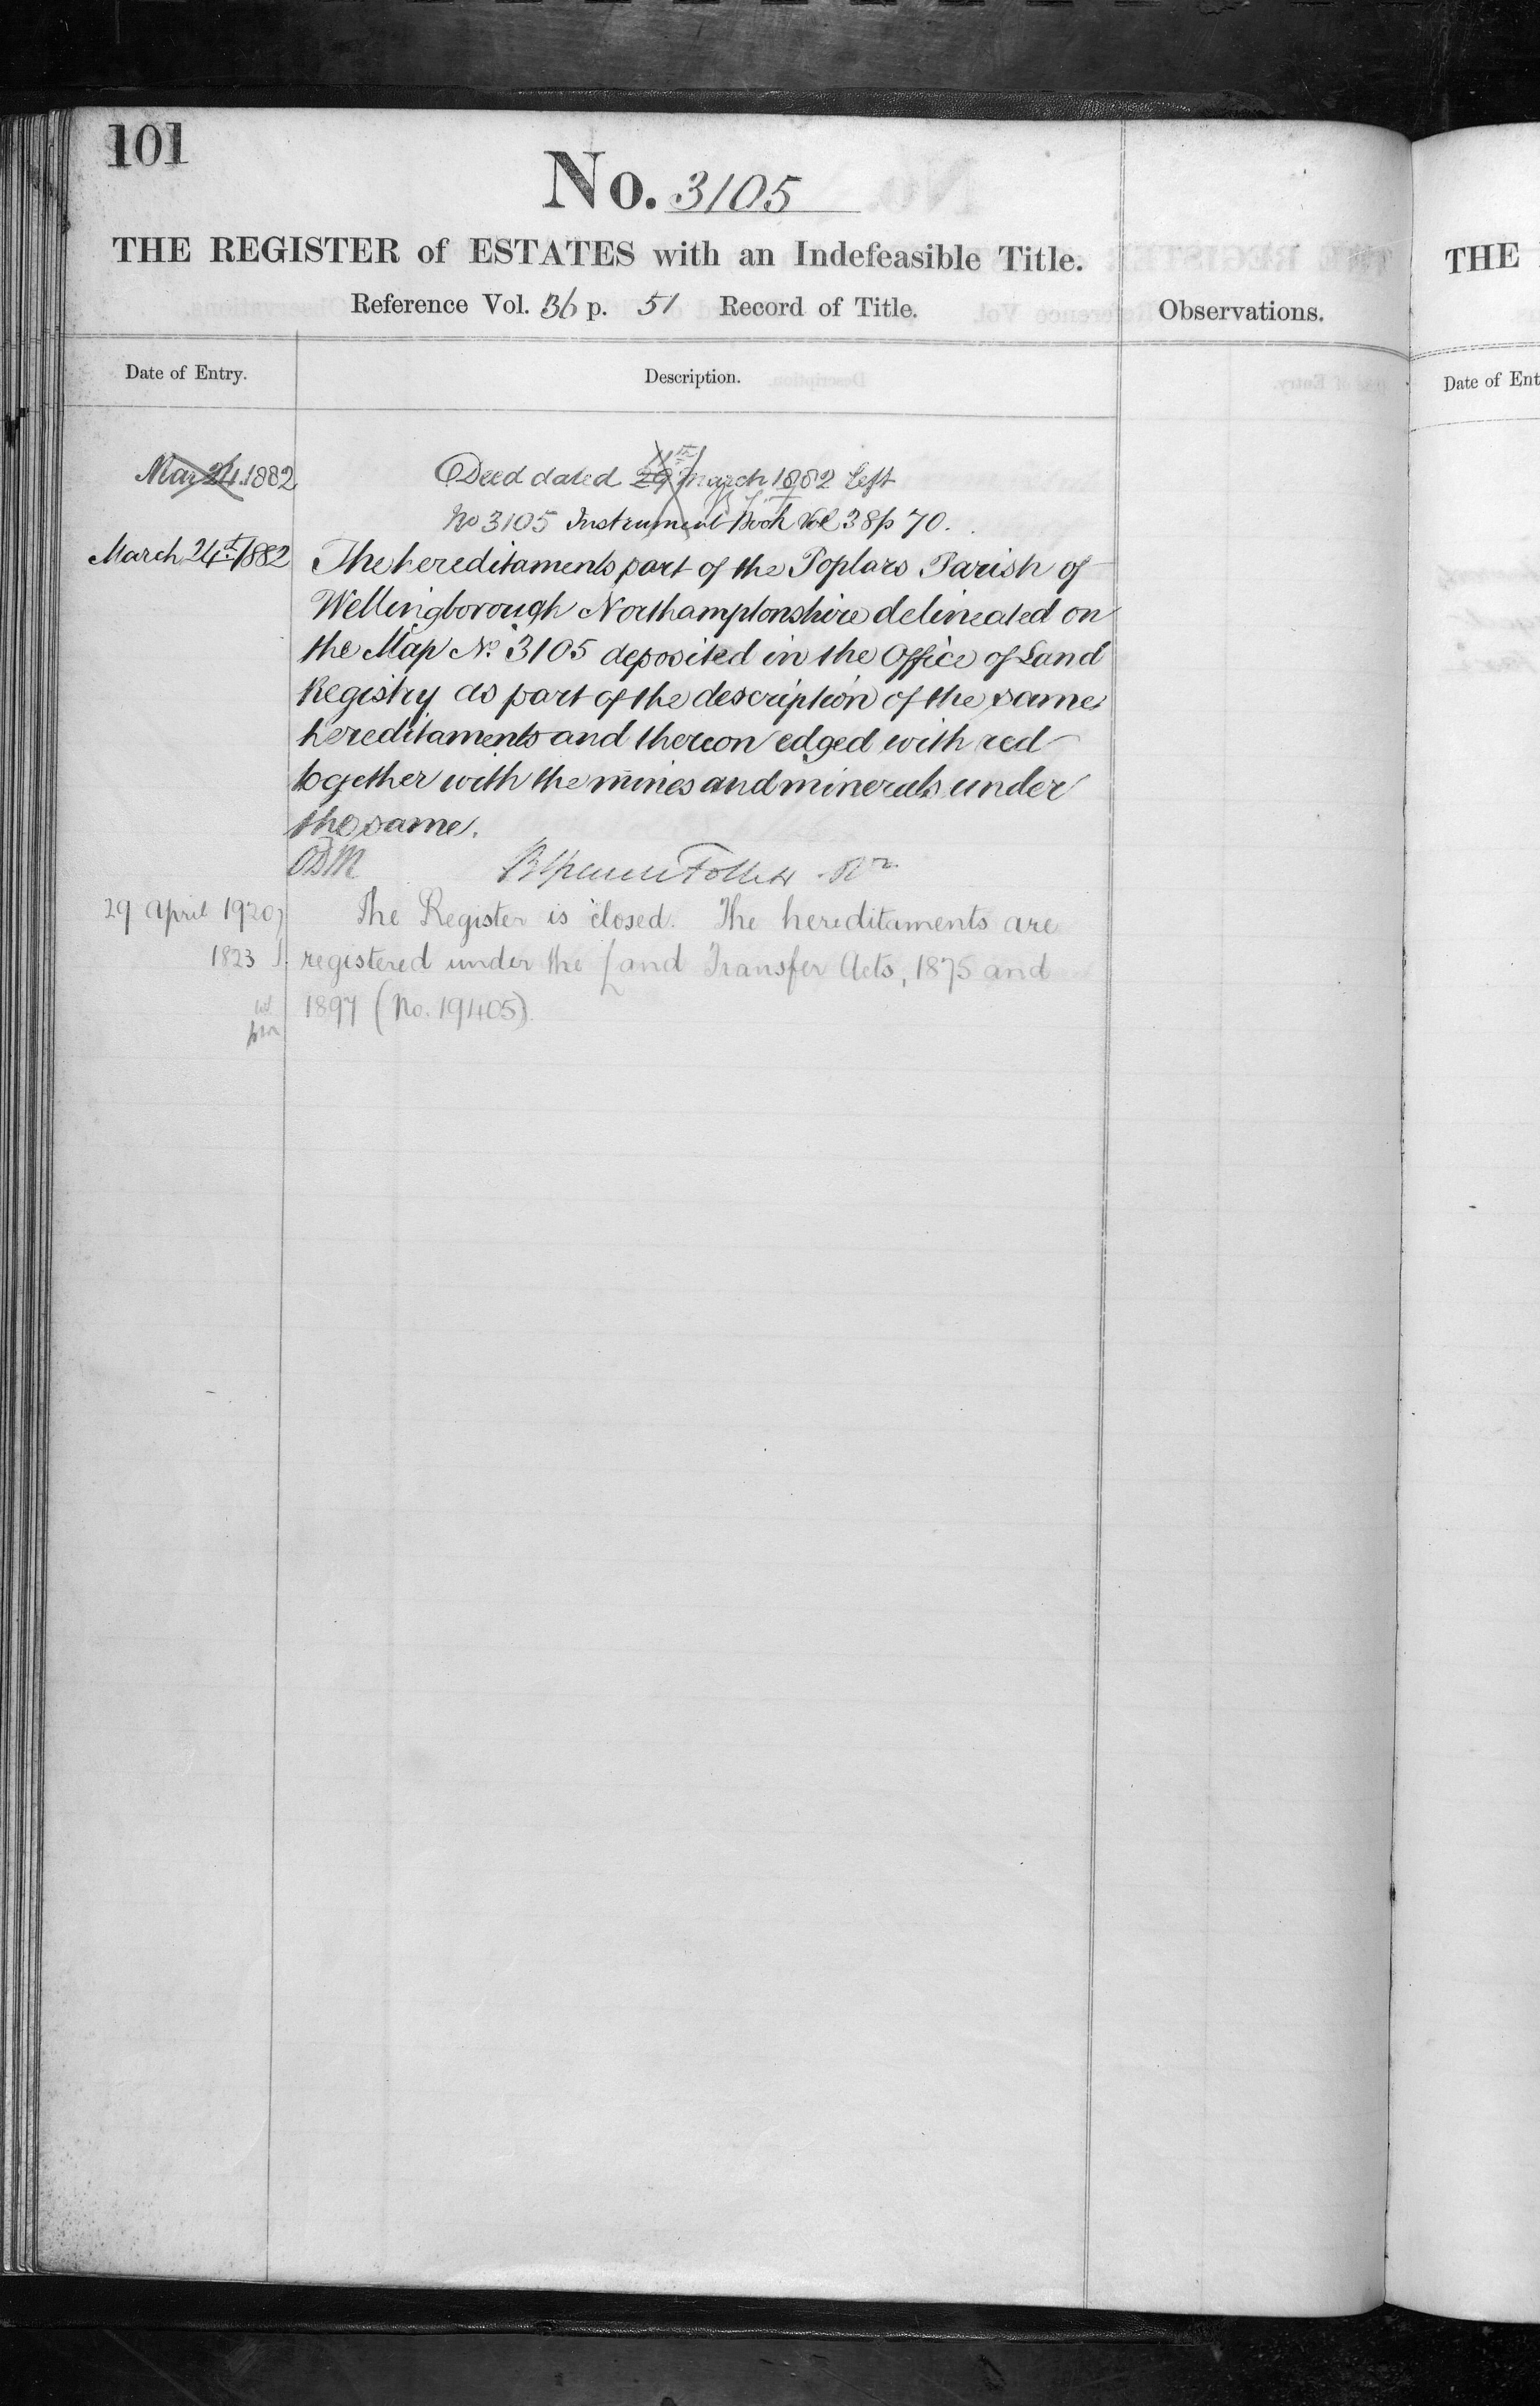 101
No. 3105
THE REGISTER of ESTATES with an Indefeasible Title.
Reference Vol. 36 p. 51 Record of Title.
Observations.
Date of Entry.
Description.
Mar 24. 1882
Deed dated 29 11th March 1882 left
No 3105 Instrument Book Vol 38 p 70.
March 24th 1882
The hereditaments part of the Poplars Parish of
Wellingborough Northamptonshire delineated on
the Map No. 3105 deposited in the Office of Land
Registry as part of the description of the same
hereditaments and thereon edged with red
together with the mines and minerals under
the same.
29 April 1920
1823
The Register is closed. The hereditaments are
registered under the Land Transfer Acts, 1875 and
1897 (No. 19405).
THE
Date of Ent